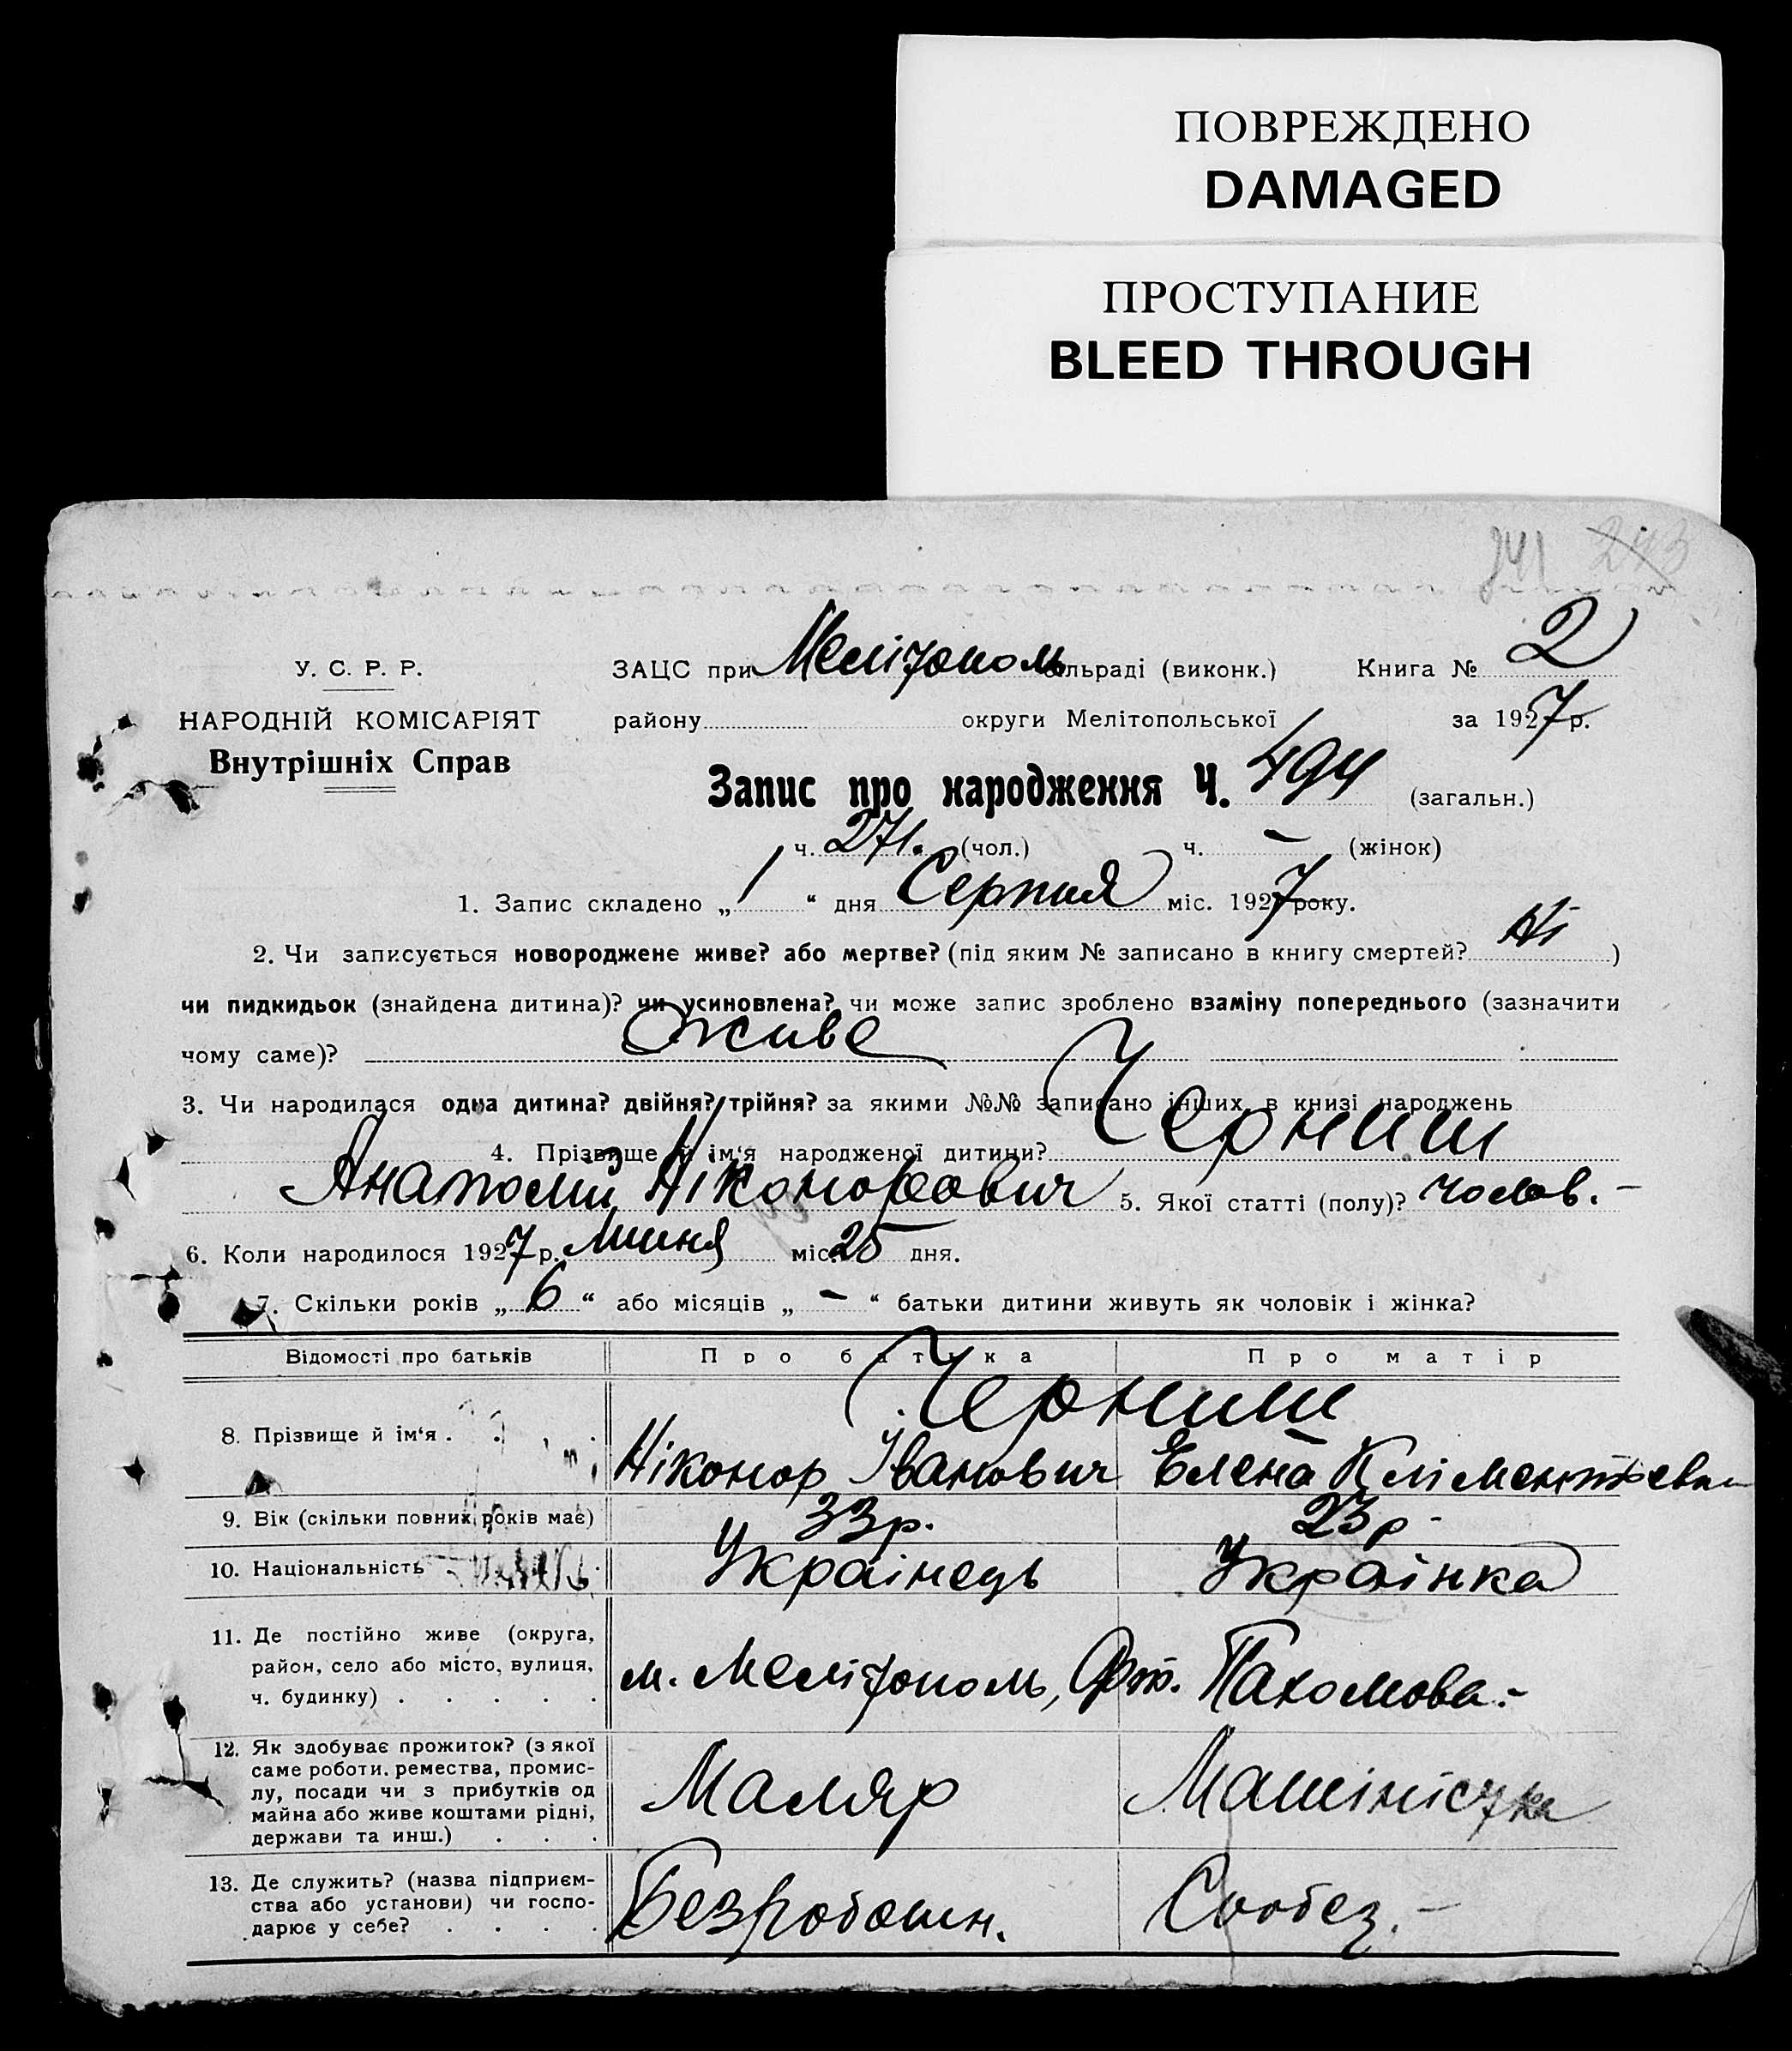 ПОВРЕЖДЕНО
DAMAGED
ПРОСТУПАНИЕ
BLEED THROUGH
241 243
У. С. Р. Р.
НАРОДНІЙ КОМІСАРІЯТ
Внутрішніх Справ
ЗАЦС при Мелітополь сільраді (виконк.) Книга № 2
району округи Мелітопольської за 1927 р.
Запис про народження Ч. 494 (загальн.)
ч. 271. (чол.) ч. – (жінок)
1. Запис складено „ 1 “ дня Серпня міс. 1927 року.
2. Чи записується новороджене живе? або мертве? (під яким № записано в книгу смертей? Ні )
чи пидкидьок (знайдена дитина)? чи усиновлена? чи може запис зроблено взаміну попереднього (зазначити
чому саме)? живе
3. Чи народилася одна дитина? двійня? трійня? за якими №№ записано інших в книзі народжень
4. Прізвище й ім‘я народженої дитини? Черниш
Анатолій Ніконорович 5. Якої статті (полу)? чолов. –
6. Коли народилося 1927 р. Липня міс. 25 дня.
7. Скільки років „ 6 “ або місяців „ – “ батьки дитини живуть як чоловік і жінка?
Відомості про батьків Про батька Про матір
Черниш
8. Прізвище й ім‘я . . . Ніконор Іванович Елена Кліментіевна
9. Вік (скільки повних років має) 33 р. 23 р -
10. Національність Украінець Украінка
11. Де постійно живе (округа,
район, село або місто, вулиця,
ч. будинку) . . . . .
м. Мелітополь, Пахомова. -
12. Як здобуває прожиток? (з якої
саме роботи. ремества, промис-
лу, посади чи з прибутків од
майна або живе коштами рідні,
держави та инш.) . . .
Маляр Машіністка
13. Де служить? (назва підприєм-
ства або установи) чи госпо-
дарює у себе? . . . .
Безработн. Собез. –